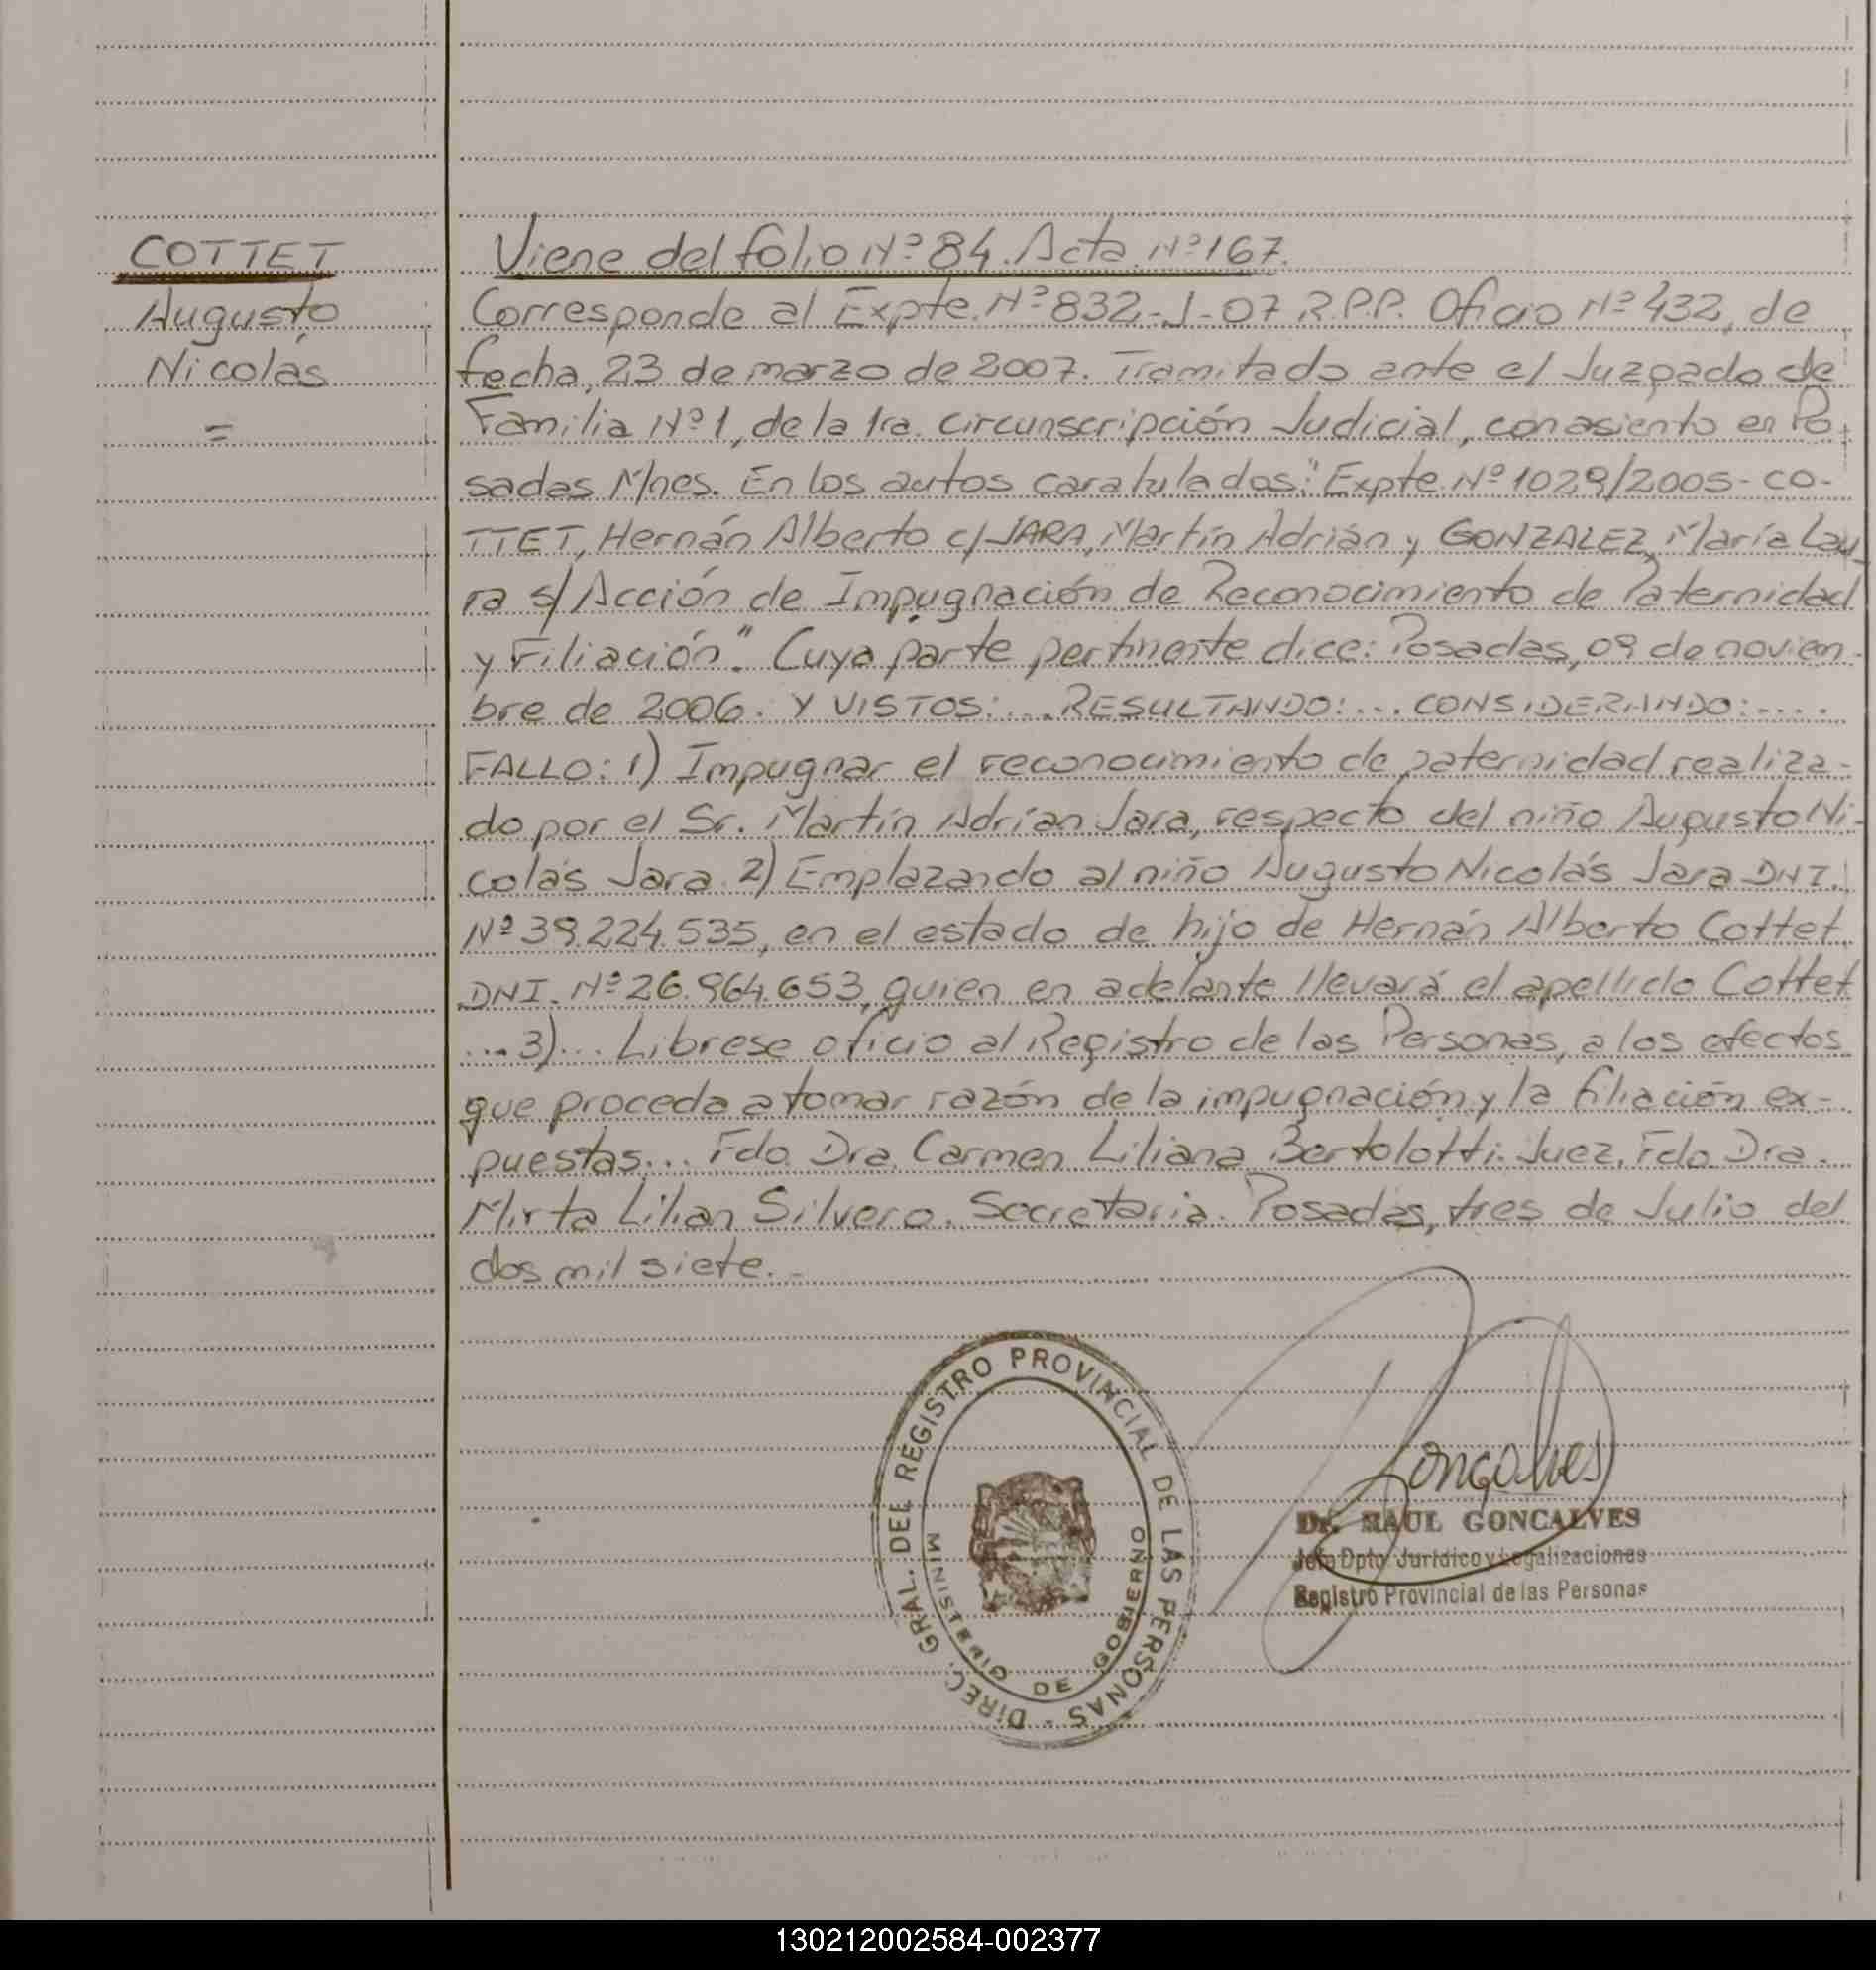 COTTET
Augusto
Nicolás
=
Viene del folio Nº 84. Acta Nº 167.
Corresponde al Expte. Nº 832-J-07 R.P.P. Oficio Nº 432, de
fecha, 23 de marzo de 2007. Tramitado ante el Juzgado de
Familia Nº 1, de la 1ra. circunscripción Judicial, con asiento en Po-
sadas Mnes. En los autos caratulados: "Expte. Nº 1029/2005- CO-
TTET, Hernán Alberto c/ JARA, Martín Adrián y GONZALEZ, María Lau-
ra s/ Acción de Impugnación de Reconocimiento de Paternidad
y Filiación". Cuya parte pertinente dice: Posadas, 09 de noviem-
bre de 2006. Y VISTOS: ... RESULTANDO: ... CONSIDERANDO: ....
FALLO: 1) Impugnar el reconocimiento de paternidad realiza-
do por el Sr. Martín Adrián Jara, respecto del niño Augusto Ni-
colás Jara. 2) Emplazando al niño Augusto Nicolás Jara DNI.
Nº 39.224.535, en el estado de hijo de Hernán Alberto Cottet
DNI. Nº 26.964.653, quien en adelante llevará el apellido Cottet
... 3)... Librese oficio al Registro de las Personas, a los efectos
que proceda a tomar razón de la impugnación y la filiación ex-
puestas... Fdo. Dra. Carmen Liliana Bertolotti. Juez. Fdo. Dra.
Mirta Lilian Silvero. Secretaria. Posadas, tres de Julio del
dos mil siete.-
DIREC. GRAL. DEL REGISTRO PROVINCIAL DE LAS PERSONAS -
MINISTERIO DE GOBIERNO
Goncalves
Dr. RAUL GONCALVES
Jefe Dpto. Jurídico y Legalizaciones
Registro Provincial de las Personas
130212002584-002377